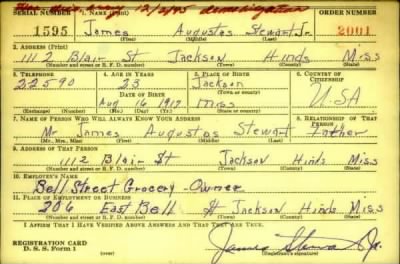 12/2/45
SERIAL NUMBER 1. NAME (Print) ORDER NUMBER
1595 James Augustas Stewart Jr. 2001
(First) (Middle) (Last)
2. ADDRESS (Print)
1112 Blair St Jackson Hinds Miss
(Number and street or R. F. D. number) (Town) (County) (State)
3. TELEPHONE 4. AGE IN YEARS 5. PLACE OF BIRTH 6. COUNTRY OF CITIZENSHIP
22590 23 Jackson
DATE OF BIRTH (Town or county)
Aug 16 1917 Miss USA
(Mo.) (Day) (Yr.) (State or country)
7. NAME OF PERSON WHO WILL ALWAYS KNOW YOUR ADDRESS 8. RELATIONSHIP OF THAT PERSON
Mr James Augustas Stewart Father
(Mr., Mrs., Miss) (First) (Middle) (Last)
9. ADDRESS OF THAT PERSON
1112 Blair St Jackson Hinds Miss
(Number and street or R. F. D. number) (Town) (County) (State)
10. EMPLOYER'S NAME
Bell Street Grocery - Owner
11. PLACE OF EMPLOYMENT OR BUSINESS
206 East Bell St Jackson Hinds Miss
(Number and street or R. F. D. number) (Town) (County) (State)
I AFFIRM THAT I HAVE VERIFIED ABOVE ANSWERS AND THAT THEY ARE TRUE.
REGISTRATION CARD
D. S. S. Form 1 (Registrant's signature)